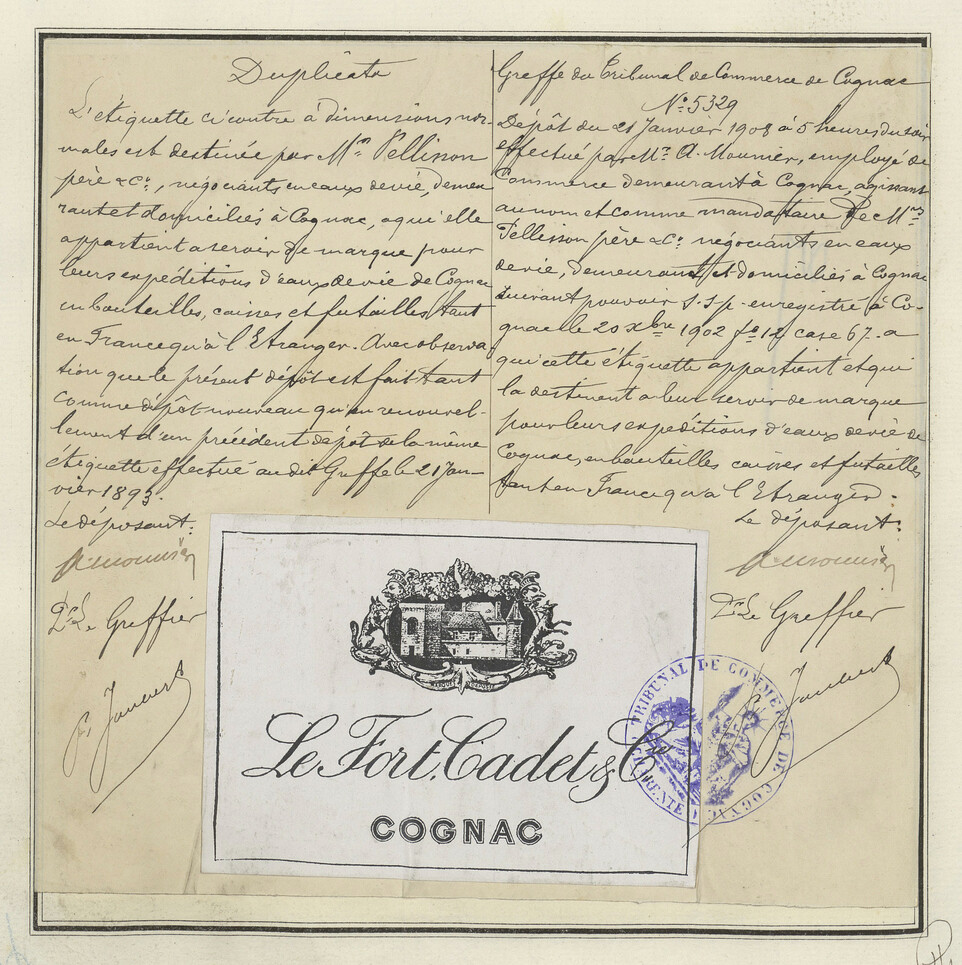 Duplicata
L'étiquette ci contre à dimensions nor-
males est destinée par Mrs Pellisson
père & Co, négociants en eaux de vie, demeu
rant et domiciliés à Cognac, a qui elle
appartient a servir de marque pour
leurs expéditions d'eaux de vie de Cognac
en bouteilles, caisses et futailles tant
en France qu'à l'Etranger. Avec observa-
tion que le présent dépôt est fait tant
comme dépôt nouveau qu'en renouvel-
lement d'un précédent dépôt de la même
étiquette effectué au dit Greffe le 21 Jan-
vier 1893.
Le déposant:
A. Mounier
Le Greffier
Greffe du Tribunal de Commerce de Cognac
No 5329
Dépôt du 21 Janvier 1908 à 5 heures du soir
effectué par Mr A. Mounier, employé de
Commerce demeurant à Cognac, agissant
au nom et comme mandataire de Mrs
Pellisson père & Co négociants en eaux
de vie, demeurant et domiciliés à Cognac
suivant pouvoir s.s.p. enregistré à Co-
gnac le 20 Xbre 1902 fo 12 case 67. a
qui cette étiquette appartient et qui
la destinent a leur servir de marque
pour leurs expéditions d'eaux de vie de
Cognac, en bouteilles caisses et futailles
tant en France qu'à l'Etranger.
Le déposant:
A. Mounier
Le Greffier
MARQUE DÉPOSÉE
Le Fort, Cadet & Cie
COGNAC
TRIBUNAL DE COMMERCE DE COGNAC
CHARENTE